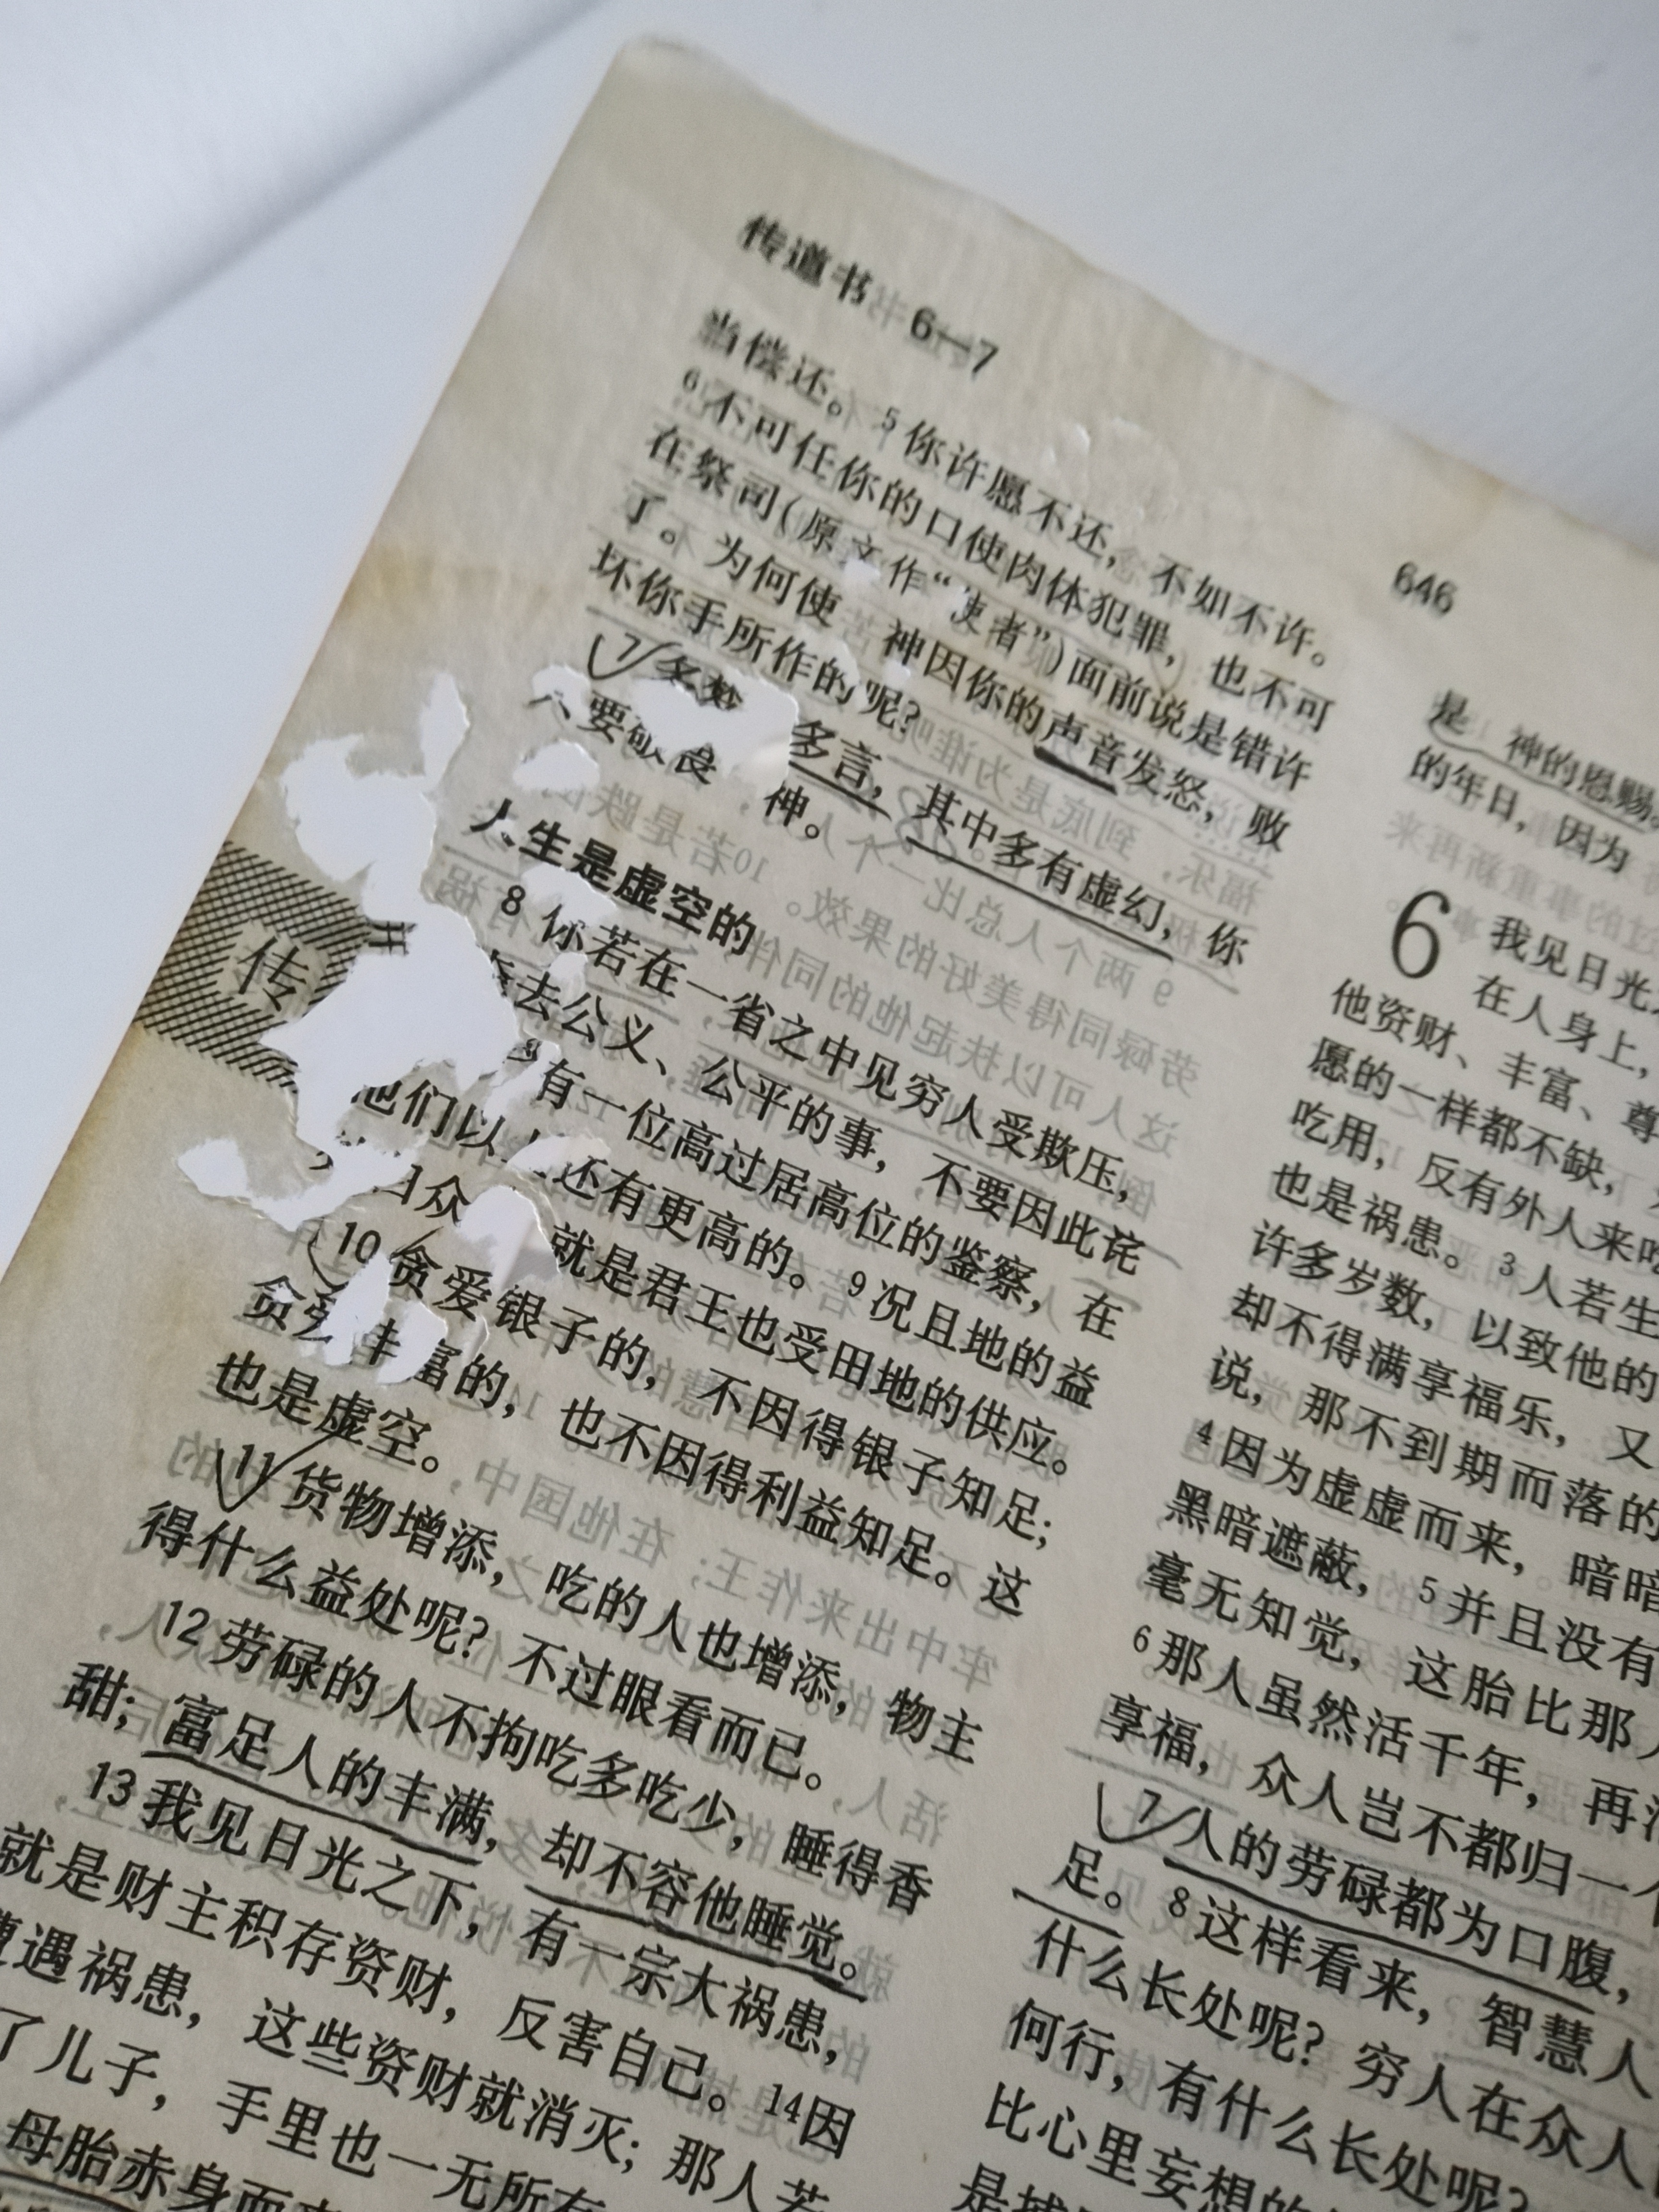 传道书 6—7
646
当偿还。5你许愿不还，不如不许。
6不可任你的口使肉体犯罪，也不可
在祭司（原文作“使者”）面前说是错许
了。为何使 神因你的声音发怒，败
坏你手所作的呢？
7多梦 多言，其中多有虚幻，你
要敬畏 神。
人生是虚空的
8你若在一省之中见穷人受欺压，
去公义、公平的事，不要因此诧
有一位高过居高位的鉴察，在
他们以上还有更高的。9况且地的益
众 就是君王也受田地的供应。
10贪爱银子的，不因得银子知足；
贪 丰富的，也不因得利益知足。这
也是虚空。
11货物增添，吃的人也增添，物主
得什么益处呢？不过眼看而已。
12劳碌的人不拘吃多吃少，睡得香
甜；富足人的丰满，却不容他睡觉。
13我见日光之下，有一宗大祸患，
就是财主积存资财，反害自己。14因
遭遇祸患，这些资财就消灭；那人若
了儿子，手里也一无所有
母胎赤身而来
传
是 神的恩赐。
的年日，因为
6 我见日光
在人身上，
他资财、丰富、尊
愿的一样都不缺，
吃用，反有外人来吃
也是祸患。3人若生
许多岁数，以致他的
却不得满享福乐，又
说，那不到期而落的
4因为虚虚而来，暗暗
黑暗遮蔽，5并且没有
毫无知觉，这胎比那人
6那人虽然活千年，再活
享福，众人岂不都归一个
7人的劳碌都为口腹，
足。8这样看来，智慧人
什么长处呢？穷人在众人
何行，有什么长处呢？
比心里妄想的
是捕